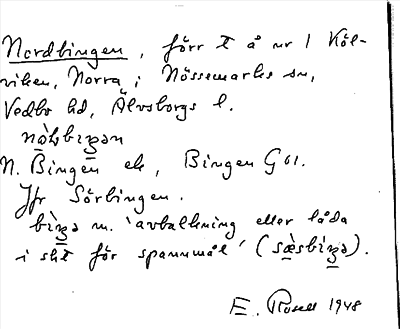 Nordbingen, förr t å nr 1 Köl-
viken, Norra, i Nössemarks sn,
Vedbo hd, Älvsborgs l.
N. Bingen ek, Bingen G 61.
Jfr Sörbingen.
m. 'avbalkning eller låda
i sht för spannmål'
E. Rosell 1948